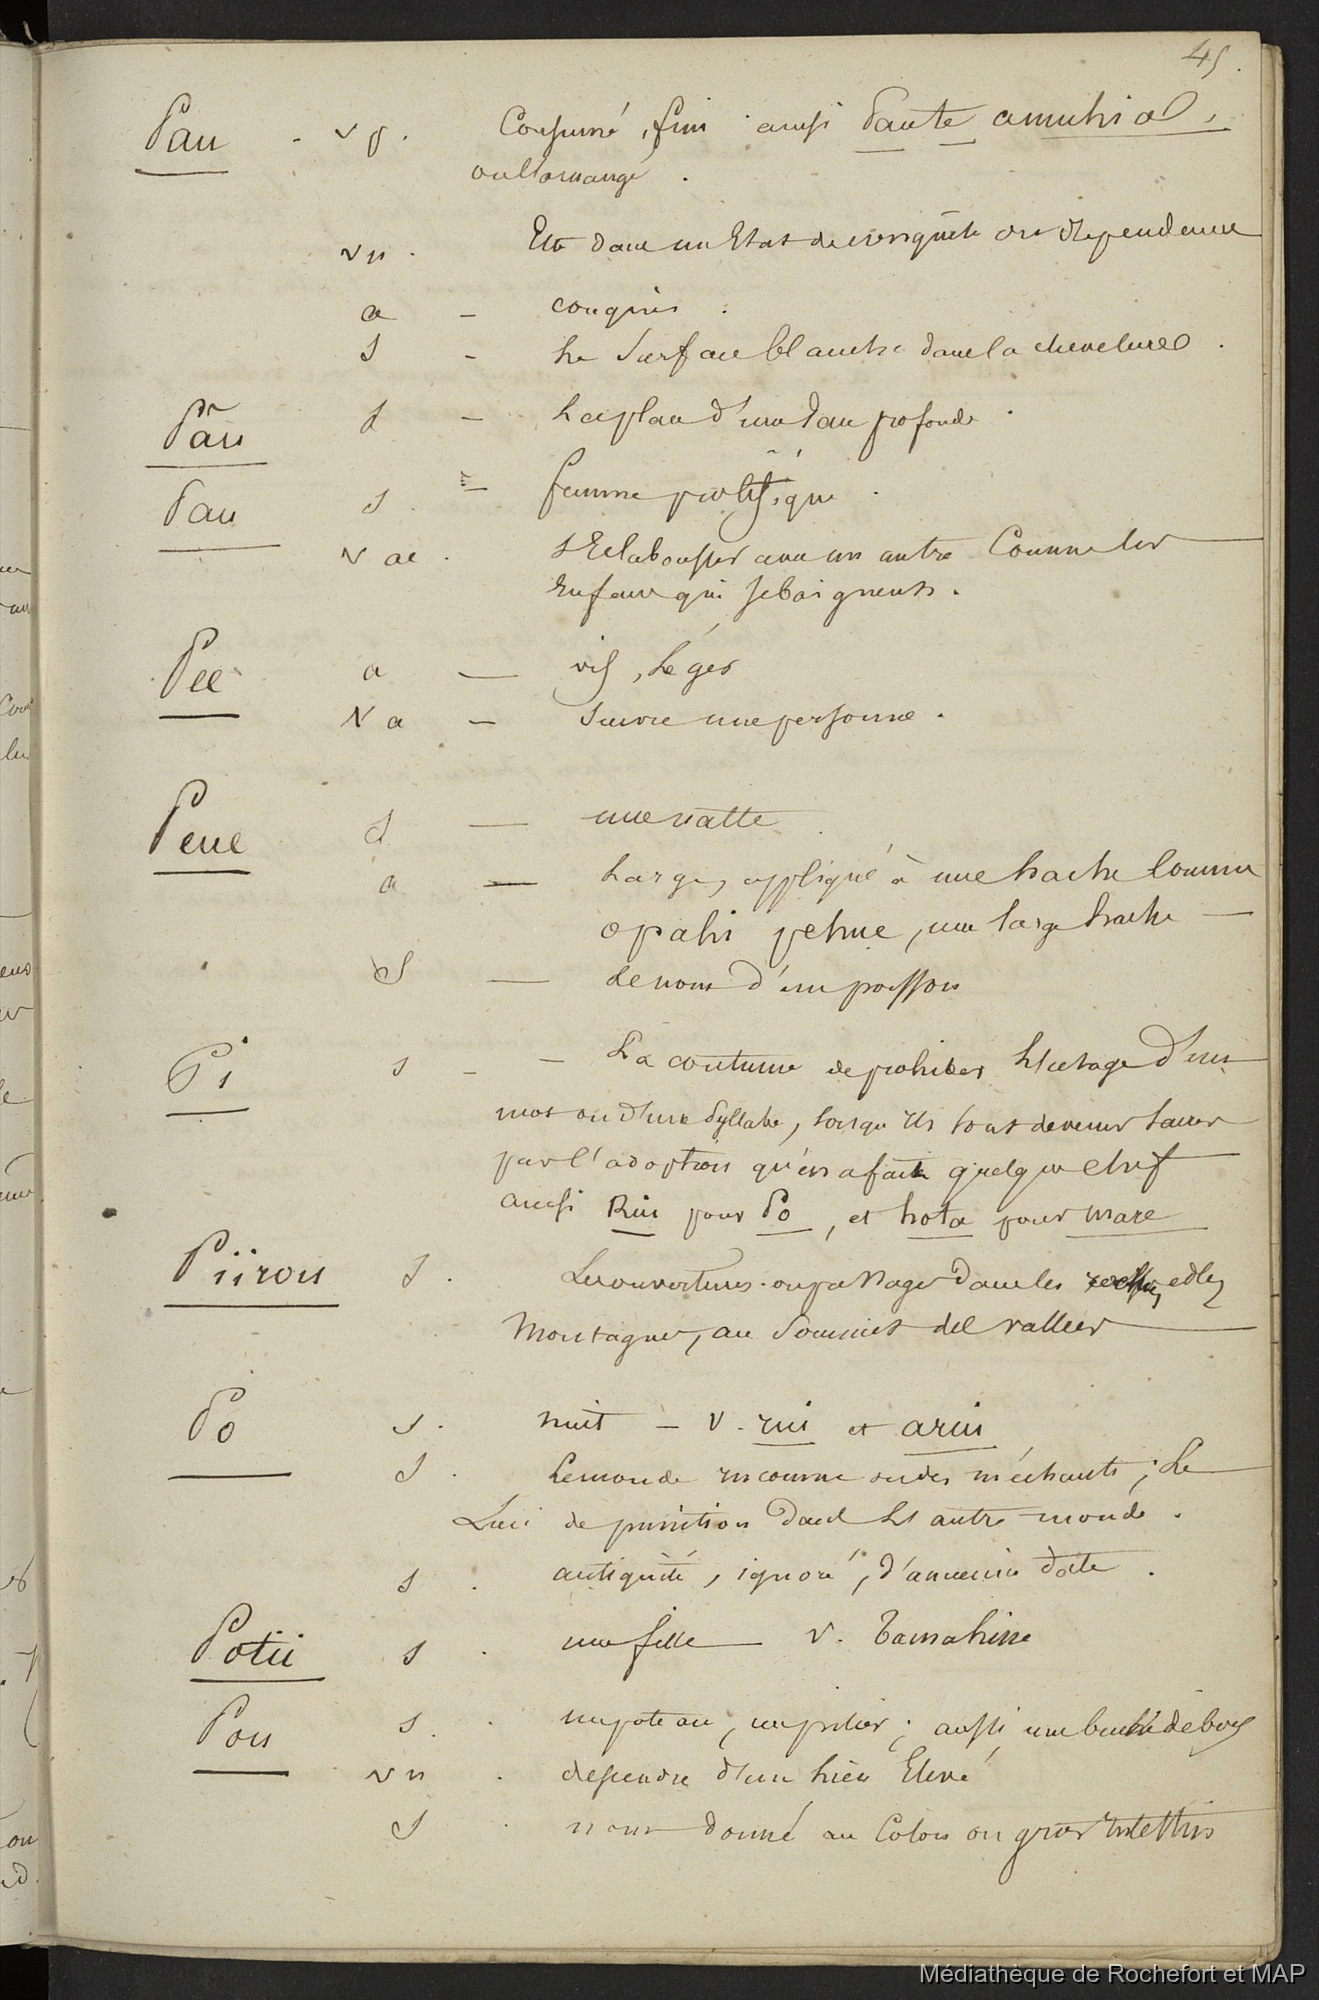 45.
Pau - v p. Consumé, fini ainsi Pau te amuhia,
ou l'a mangé.
v n. Etre dans un Etat de conquête ou dépendance
a - conquis.
S - La Surface blanche dans la chevelure.
Pāu S - La plan d'une Eau profonde.
Pau S. - femme prolifique.
v ae. s'Eclabousser avec un autre Comme les
Enfans qui se baignent.
Pee a - vif, Léger
v a - Suivre une personne.
Peue S - une natte
a - Large, appliqué à une hache Comme
opahi pehue, une large hache
S - Le nom d'un poisson
Pi s - La coutume de prohiber l'usage d'un
mot ou d'une Syllabe, lorsqu'ils sont devenus Sacrés
par l'adoption qu'en a fait quelque chef
ainsi Rui pour Po, et hota pour mare
Piirou S. Les ouvertures ou passages dans les et les
Montagnes, au Sommet des vallées
Po S. nuit - V. rui et arui
S. Le monde inconnu ou des méchants; Le
Lieu de punition dans l'autre monde.
S. antiquité, ignoré, d'ancienne date.
Potii S. une fille V. Tamahine
Pou S. un poteau, un pilier; aussi une buche de bois
v n. descendre d'un lieu Elevé
S. nom donné au Colon ou gros intestin
Médiathèque de Rochefort et MAP